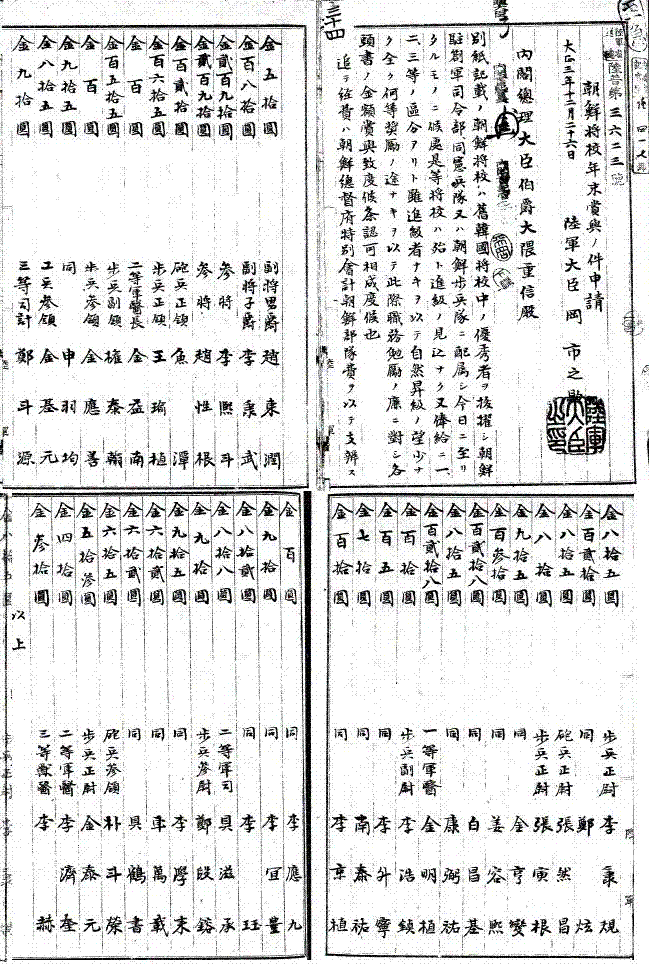 陸普第三六二三號
朝鮮將校年末賞與ノ件申請
大正三年十二月二十六日 陸軍大臣岡市之助
陸軍大臣之印
內閣總理大臣伯爵大隈重信殿
別紙記載ノ朝鮮將校ハ舊韓國將校中ノ優秀者ヲ拔擢シ朝鮮
駐劄軍司令部同憲兵隊又ハ朝鮮步兵隊ニ配屬シ今日ニ至リ
タルモノニ候處是等將校ハ殆ト進級ノ見込ナク又俸給ニ一、
二、三等ノ區分アリト雖進級者ナキヲ以テ自然昇級ノ望少ナ
ク全ク何等奬勵ノ途ナキヲ以テ此際職務勉勵ノ廉ニ對シ各
頭書ノ金額賞與致度候条認可相成度候也
追テ経費ハ朝鮮總督府特別會計朝鮮部隊費ヲ以テ支辨ス
三十四
金五拾圓 副將男爵 趙東潤
金百八拾圓 副將子爵 李秉武
金貳百九拾圓 參將 李熙斗
金貳百九拾圓 參將 趙性根
金百貳拾圓 砲兵正領 魚潭
金百六拾五圓 步兵正領 王瑜植
金百圓 二等軍醫長 金益南
金百五拾五圓 步兵副領 權泰翰
金百圓 步兵參領 金應善
金九拾五圓 同 申羽均
金八拾五圓 工兵參領 金基元
金九拾圓 三等司計 鄭斗源
金八拾五圓 步兵正尉 李秉規
金百貳拾圓 同 鄭炫
金八拾五圓 砲兵正尉 張然昌
金八拾圓 步兵正尉 張寅根
金九拾五圓 同 金亨燮
金百參拾圓 同 姜容熙
金百貳拾八圓 同 白昌基
金八拾五圓 同 康弼祐
金百貳拾八圓 一等軍醫 金明植
金百拾圓 步兵副尉 李浩鎮
金百五圓 同 李升寧
金七拾圓 同 南泰祐
金百拾圓 同 李京植
金百圓 同 李應九
金九拾圓 同 李宜豊
金八拾貳圓 同 李珏
金八拾八圓 二等軍司 具滋承
金九拾圓 步兵參尉 鄭㱓鎔
金九拾五圓 同 李學來
金六拾貳圓 同 車萬載
金六拾貳圓 同 具鶴書
金六拾五圓 砲兵參領 朴斗榮
金五拾參圓 步兵正尉 金泰元
金四拾圓 二等軍醫 李濟奎
金參拾圓 三等獸醫 李赫
以上